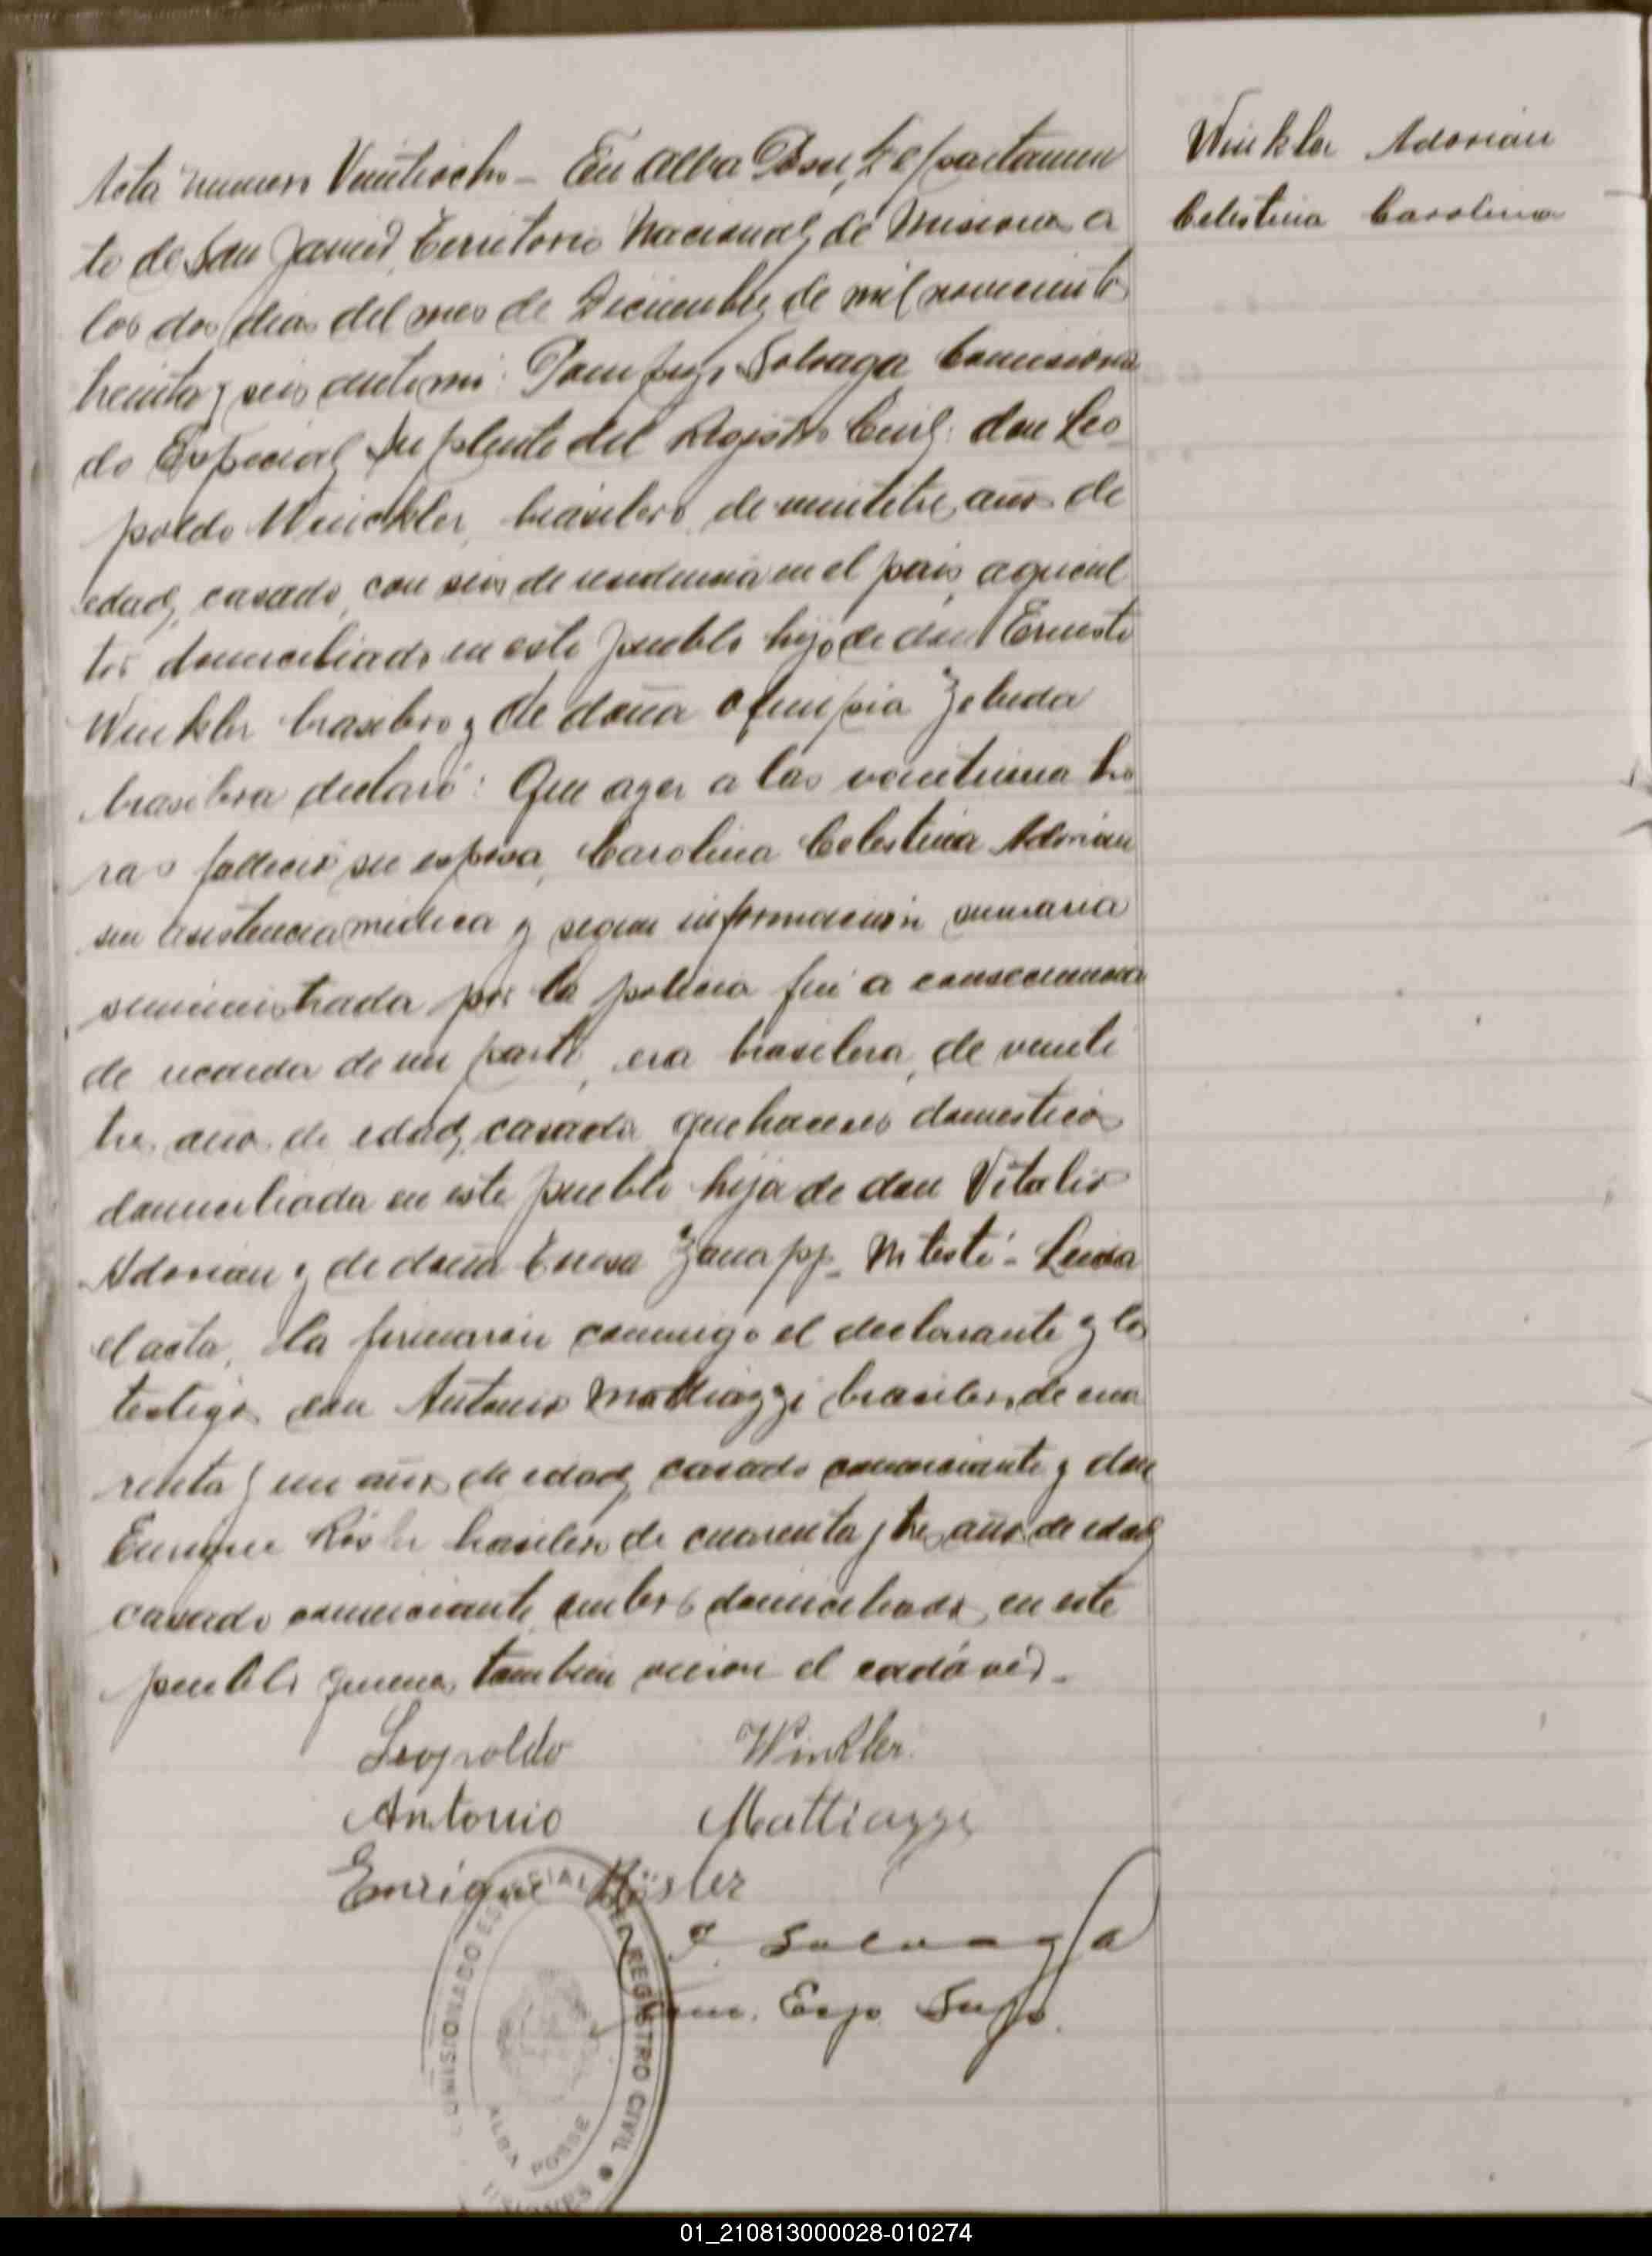 Winkler Adorian
Celestina Carolina
Acta numero Veintiocho - En Alba Posse, Departamen
to de San Javier, Territorio Nacional de Misiones a
los dos dias del mes de Diciembre de mil novecientos
treinta y seis ante mi: Solvaga Comisiona
do Especial Suplente del Registro Civil: don Leo
poldo Winckler, brasilero, de veintitres años de
edad, casado, con seis de residencia en el pais, agricul
tor domiciliado en este pueblo hijo de don Ernesto
Winkler brasilero y de doña Olimpia
brasilera declaró: Que ayer a las veintiuna ho
ras falleció su esposa, Carolina Celestina Adorian
sin asistencia medica y segun informacion sumaria
suministrada por la policia fué a consecuencia
de recaida de un parto, era brasilera, de veinti
tres años de edad, casada quehaceres domesticos
domiciliada en este pueblo hija de don Vitalio
Adorian y de doña - Leida
el acta, la firmaron conmigo el declarante y los
testigos don Antonio Mattiazzi brasilero, de cua
renta y un años de edad, casado comerciante y don
Enrique Rösler brasilero de cuarenta y tres años de edad
casado comerciante, ambos domiciliados en este
pueblo quienes tambien vieron el cadáver -
Leopoldo Winkler
Antonio Mattiazzi
Enrique Rösler
Solvaga
Com. Esp. Sup.
COMISIONADO ESPECIAL DEL REGISTRO CIVIL
ALBA POSSE
MISIONES
01_210813000028-010274